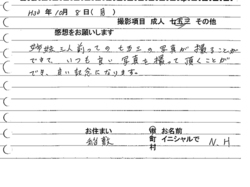 H30年10月8日(月)
撮影項目 成人 七五三 その他
感想をお願いします
姉妹2人揃っての七五三の写真が撮ることが
できて、いつも良い写真を撮って頂くことが
でき、良い記念になります。
お住まい 市町村 お名前
イニシャルで N.H